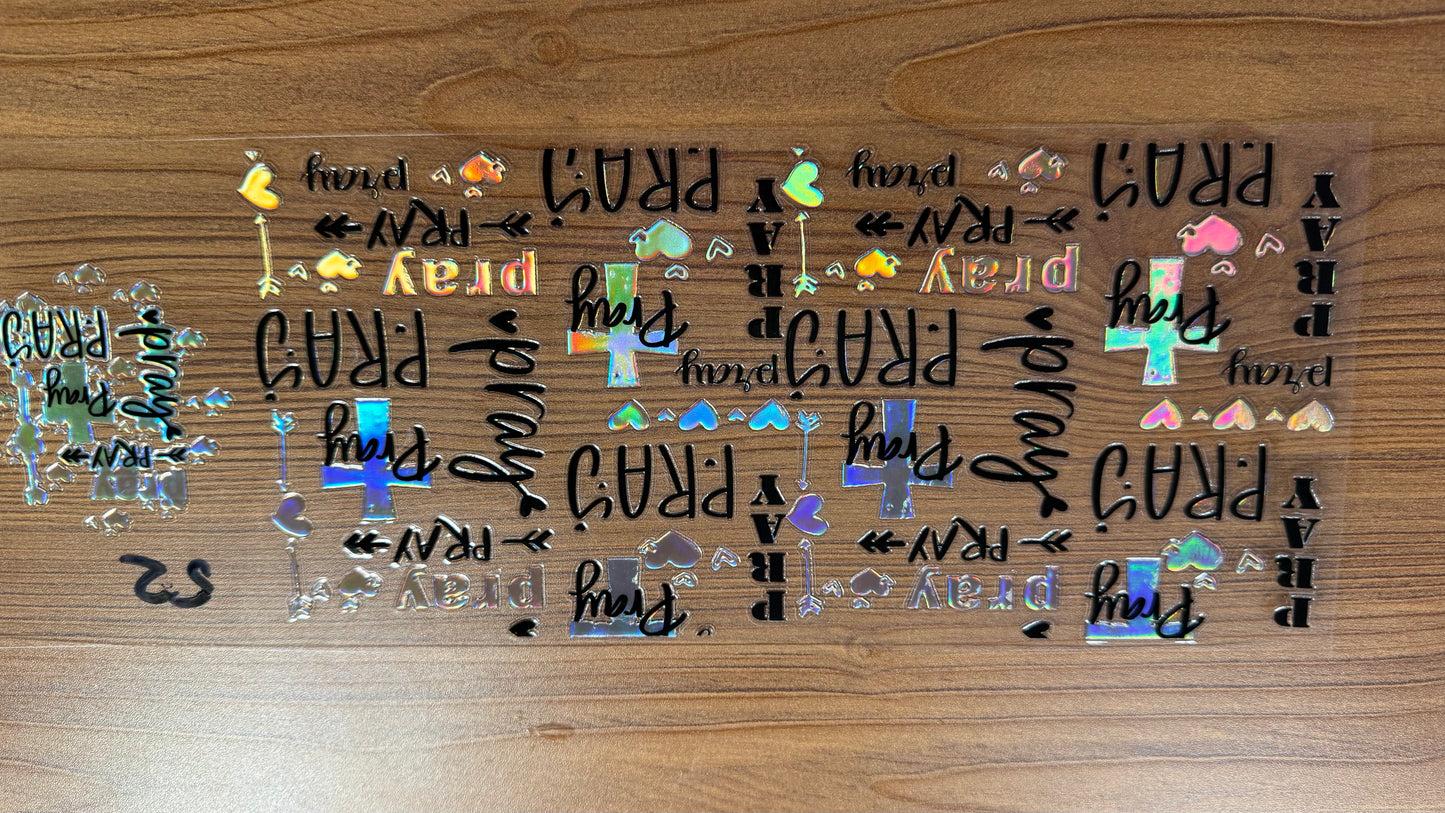 pray
PRAY
pray
PRAY
PRAY
pray
PRAY
pray
PRAY
PRAY
pray
PRAY
Pray
pray
PRAY
Pray
pray
PRAY
pray
pray
Pray
pray
PRAY
pray
Pray
pray
Pray
PRAY
pray
PRAY
PRAY
PRAY
PRAY
PRAY
PRAY
pray
pray
Pray
Pray